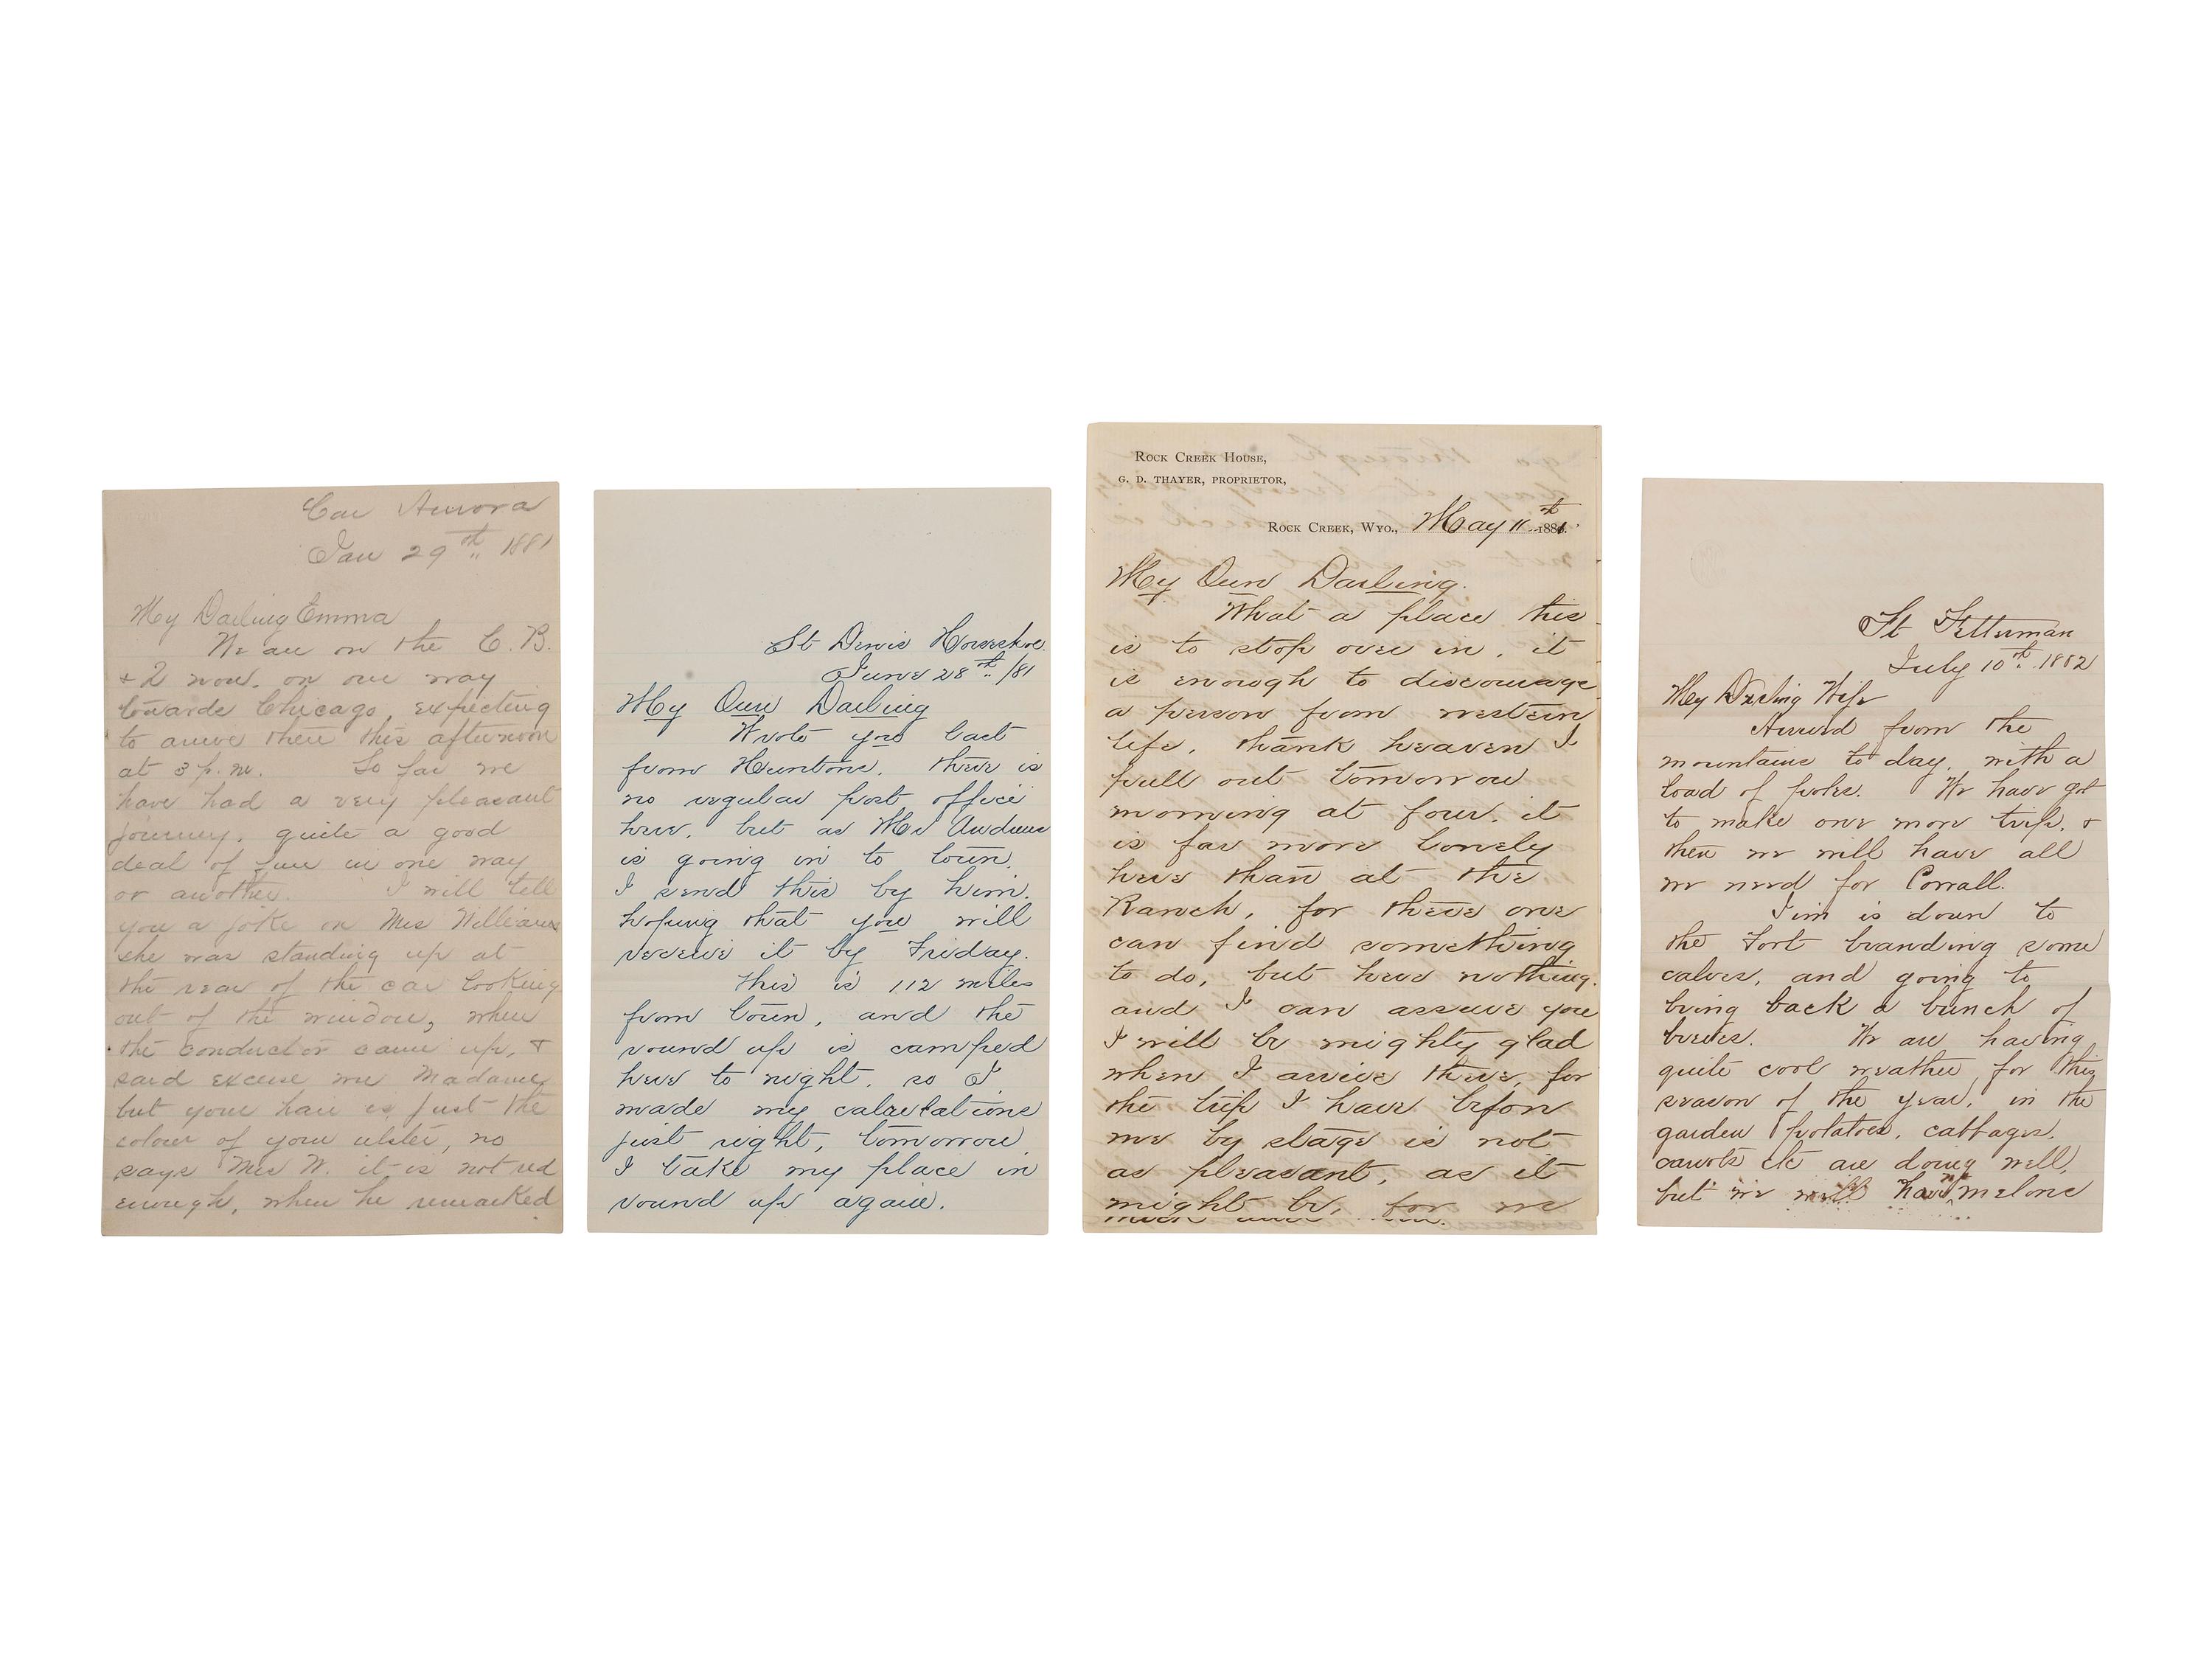 Car Aurora
Jan 29th 1881
My Darling Emma
We are on the C. B.
+ 2 now. on our way
towards Chicago, expecting
to arrive there this afternoon
at 3 p.m. So far we
have had a very pleasant
journey, quite a good
deal of fun in one way
or another. I will tell
you a joke on Mrs Williams
she was standing up at
the rear of the car looking
out of the window, when
the conductor came up, &
said excuse me Madame,
but your hair is just the
colour of your ulster, no
says Mrs W. it is not red
enough, when he remarked
St Denis Horseshoe
June 28th /81
My Own Darling
Wrote you last
from Huntons. there is
no regular post office
here, but as Mr Andrews
is going in to town,
I send this by him.
hoping that you will
receive it by Friday.
this is 112 miles
from town, and the
round up is camped
here to night, so I
made my calculations
just right, tomorrow
I take my place in
round up again.
ROCK CREEK HOUSE,
G. D. THAYER, PROPRIETOR,
ROCK CREEK, WYO., May 11th 1881.
My Own Darling.
What a place this
is to stop over in, it
is enough to discourage
a person from western
life, thank heaven I
pull out tomorrow
morning at four, it
is far more lonely
here than at the
Ranch, for there one
can find something
to do, but here nothing.
and I can assure you
I will be mighty glad
when I arrive there, for
the trip I have before
me by stage is not
as pleasant, as it
might be, for we
Ft Fetterman
July 10th 1882
My Darling Wife
Arrived from the
mountains to day, with a
load of poles. We have got
to make one more trip, &
then we will have all
we need for Corrall.
Jim is down to
the Fort branding some
calves, and going to
bring back a bunch of
beeves. We are having
quite cool weather for this
season of the year, in the
garden potatoes, cabbages,
carrots etc are doing well,
but we will have no melons